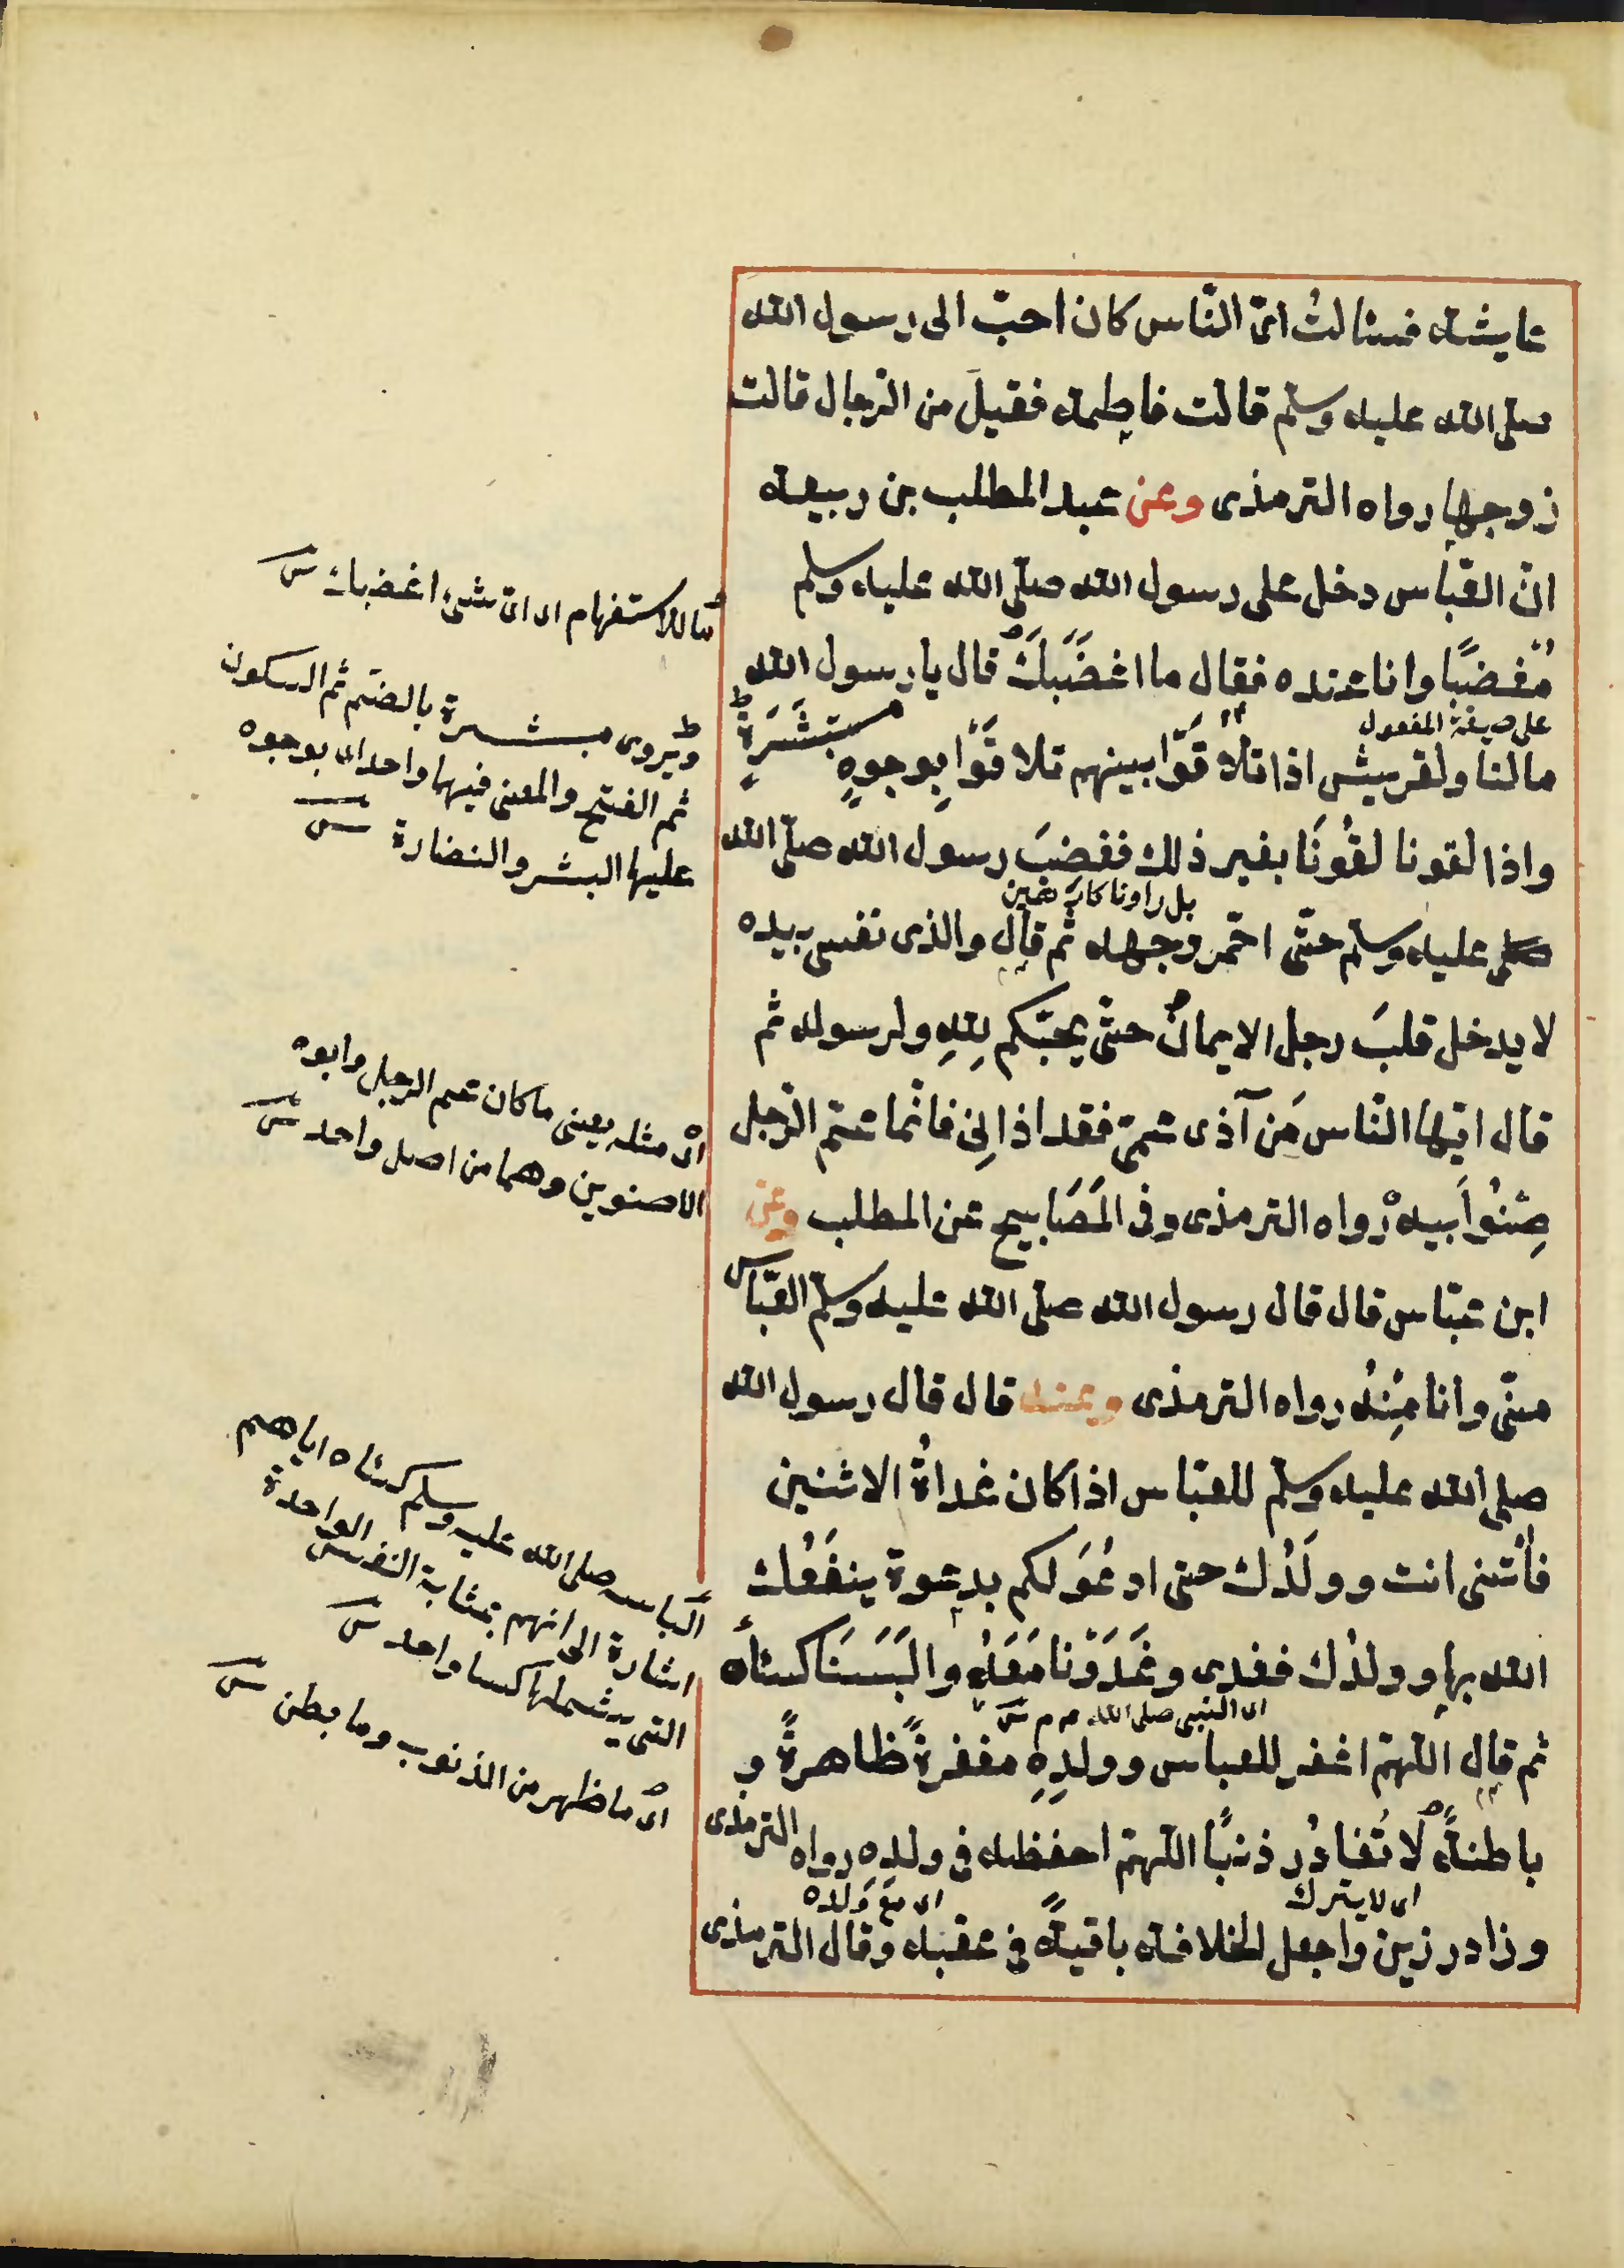 عايشة فسئالتُ اىّ النّاس كان احبّ الى رسول الله
صلى الله عليه وسلم قالت فاطمة فقيلَ من الرّجال قالت
زوجها رواه الترمذى وعن عبد المطلب بن ربيعة
انّ العبّاس دخل على رسول الله صلّى الله عليه وسلم
مُغضبًا وانا عنده فقال ما اغضَبَكَ قال يا رسول الله
على صيغة المفعول
ما لنا ولقريش اذا تلاقَوْا بينهم تلاقَوْا بِوجوهٍ مستبشَرَةٍ
واذا لقونا لقُونَا بغير ذلك فغضبَ رسول الله صلّى الله
بل راونا كارهين
عليه وسلم حتّى احمّر وجهه ثم قال والذى نفسى بيده
لا يدخل قلبَ رجل الايمانُ حتّى يحبّكم للهِ ولرسوله ثم
قال ايّها النّاس مَن آذى عمّى فقد اذانِى فانّما عمّ الرّجل
صِنْوُ اَبيه رواه الترمذى وفى المَصَابيح عن المطلب وعن
ابن عبّاس قال قال رسول الله صلى الله عليه وسلم العبّاس
منّى وانا مِنْهُ رواه الترمذى وعنه قال قال رسول الله
صلى الله عليه وسلم للعبّاس اذا كان غداةُ الاثنين
فأتنى انت وولَدُك حتى ادعُوَ لكم بدعوة ينفَعُك
الله بها وولدُك فغدى وغَدَوْنا مَعَهُ والبَسَنَا كسئاه
اى النبى صلى الله م م س
ثم قال اللّهمّ اغفر للعباس وولدِهِ مغفرةً ظاهرةً و
باطنةً لا تُغادُر ذنبًا اللّهمّ احفظه فى ولدِه رواه الترمذى
اى لا يترك
اى مع ولده
وزاد رزين واجعل الخلافة باقيةً فى عقبه وقال الترمذى
ما للاستفهام اى اىّ شىء اغضبك س
ويروى مبشرة بالضم ثم السكون
ثم الفتح والمعنى فيها واحد اى بوجوه
عليها البشر والنضارة س
اى مثله يعنى ما كان عم الرجل وابوه
الا صنوين وهما من اصل واحد س
الباسه صلى الله عليه وسلم كسئاه اياهم
اشارة الى انهم بمثابة النفس الواحدة
التى يشملها كسا واحد س
اى ما ظهر من الذنوب وما بطن س